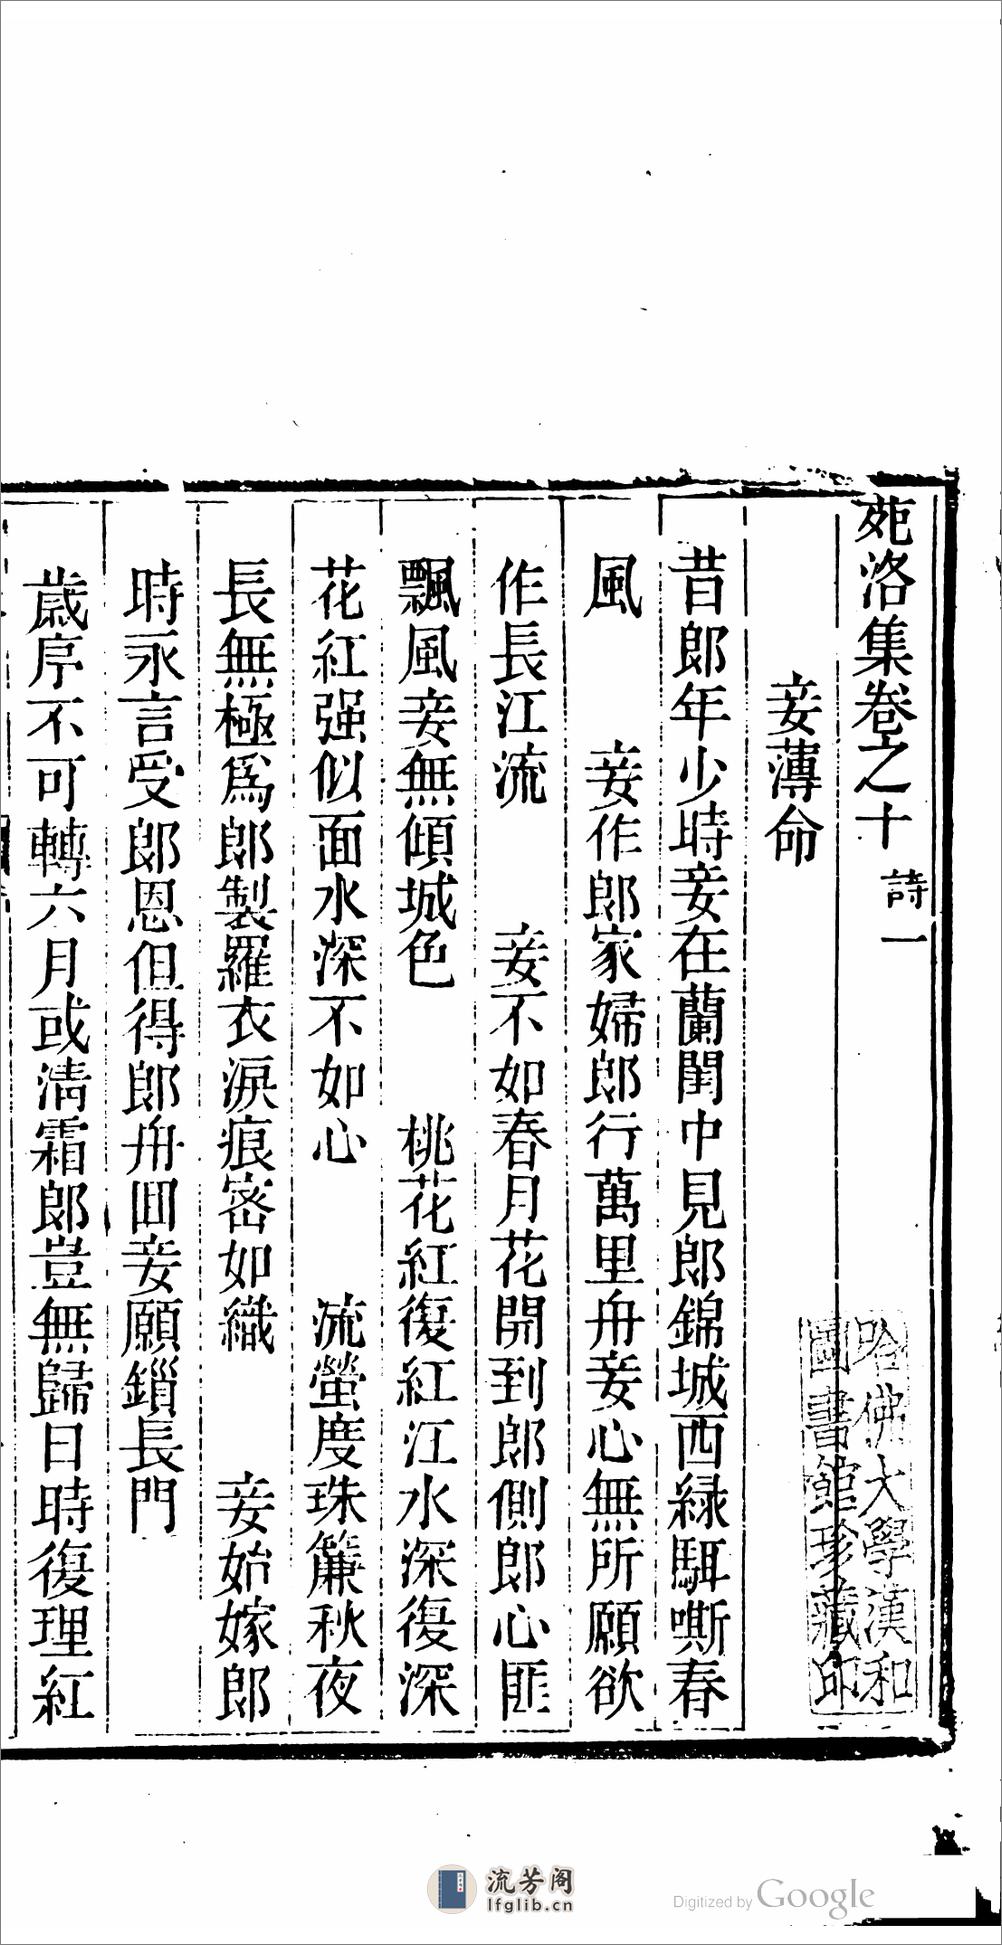 苑洛集卷之十 詩一
妾薄命
昔郎年少時妾在蘭閨中見郎錦城西緑駬嘶春
風 妾作郎家婦郎行萬里舟妾心無所願欲
作長江流 妾不如春月花開到郎側郎心匪
飄風妾無傾城色 桃花紅復紅江水深復深
花紅强似面水深不如心 流螢度珠簾秋夜
長無極爲郎製羅衣淚痕密如織 妾始嫁郎
時永言受郎恩但得郎舟回妾願鎖長門
歲序不可轉六月或清霜郎豈無歸日時復理紅
哈佛大學漢和
圖書館珍藏印
流芳阁
lfglib.cn
Digitized by Google